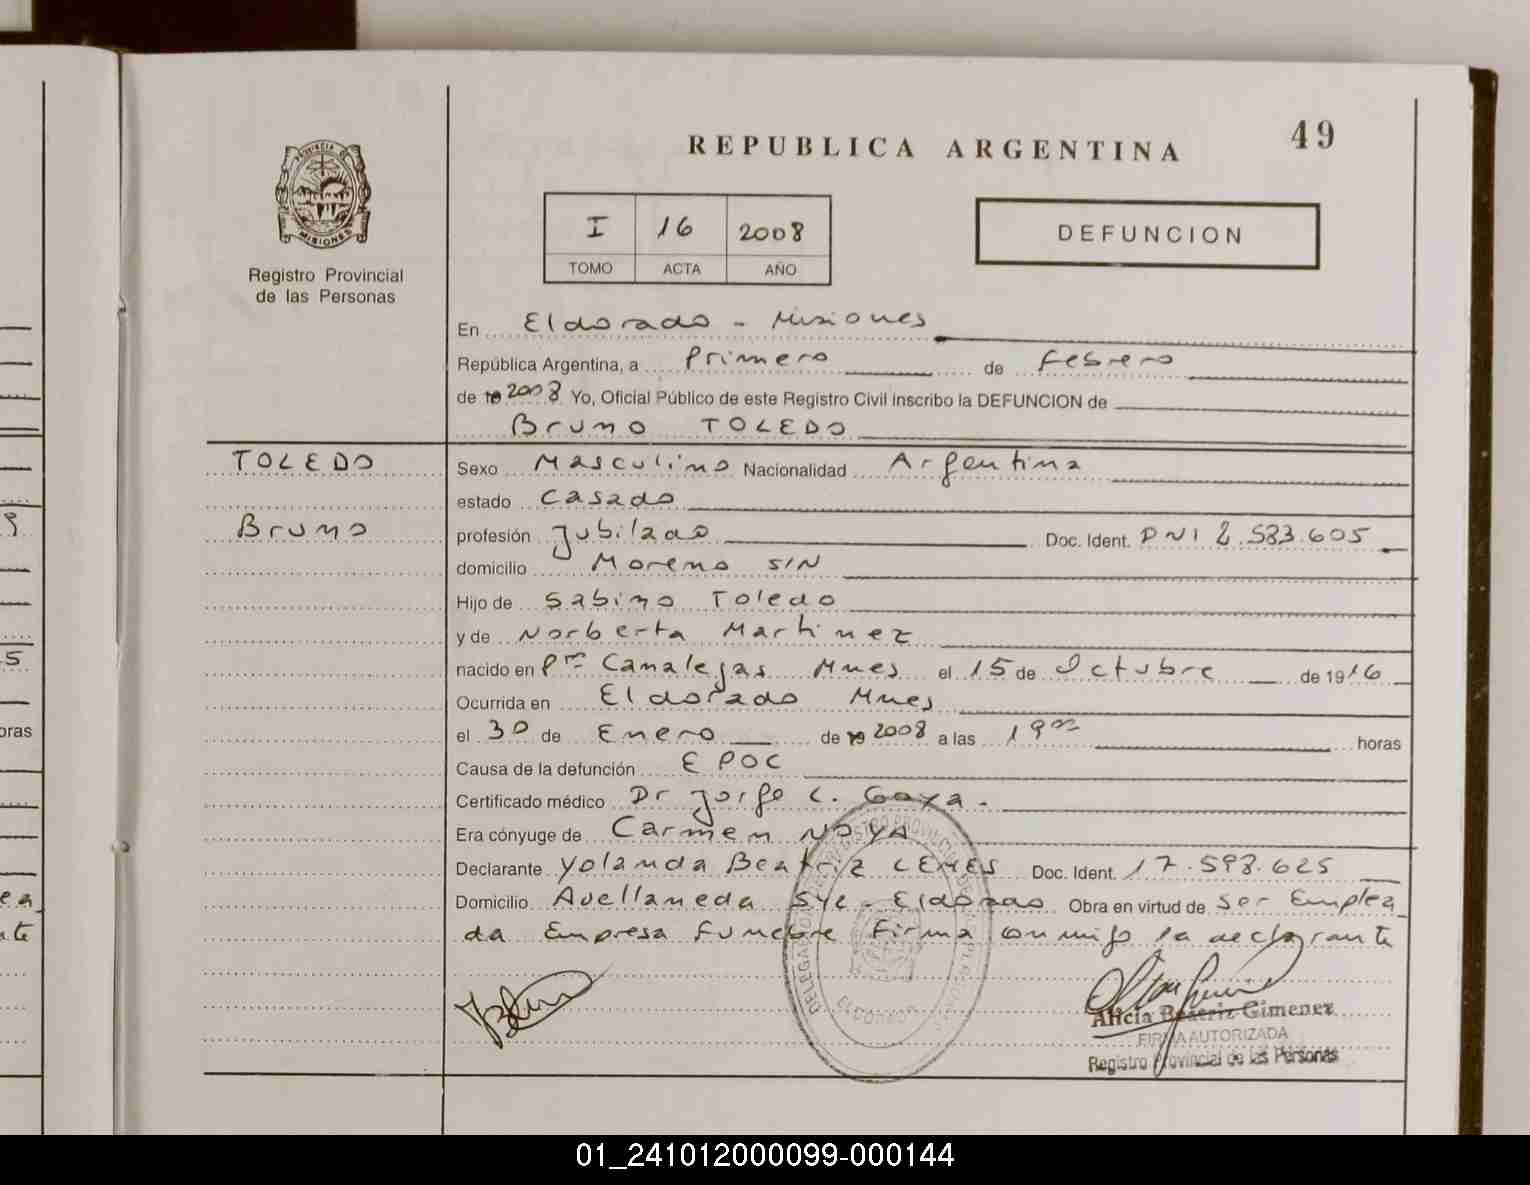 49
REPUBLICA ARGENTINA
PROVINCIA DE
MISIONES
Registro Provincial
de las Personas
I 16 2008
TOMO ACTA AÑO
DEFUNCION
En Eldorado - Misiones
República Argentina, a Primero de Febrero
de 19 2008 Yo, Oficial Público de este Registro Civil inscribo la DEFUNCION de
Bruno TOLEDO
TOLEDO
Bruno
Sexo Masculino Nacionalidad Argentina
estado Casado
profesión Jubilado Doc. Ident. DNI 2.583.605
domicilio Moreno S/N
Hijo de Sabino Toledo
y de Norberta Martinez
nacido en Pto Canalejas Mnes el 15 de Octubre de 1916
Ocurrida en Eldorado Mnes
el 30 de Enero de 19 2008 a las 19 horas
Causa de la defunción EPOC
Certificado médico Dr Jorge C. Goya.
Era cónyuge de Carmen NOYA
Declarante Yolanda Beatriz LEMES Doc. Ident. 17.598.625
Domicilio Avellaneda - Eldorado Obra en virtud de ser Emplea
da Empresa Funebre Firma conmigo la declarante
Alicia Beatriz Gimenez
FIRMA AUTORIZADA
Registro Provincial de las Personas
ELDORADO
oras
01_241012000099-000144